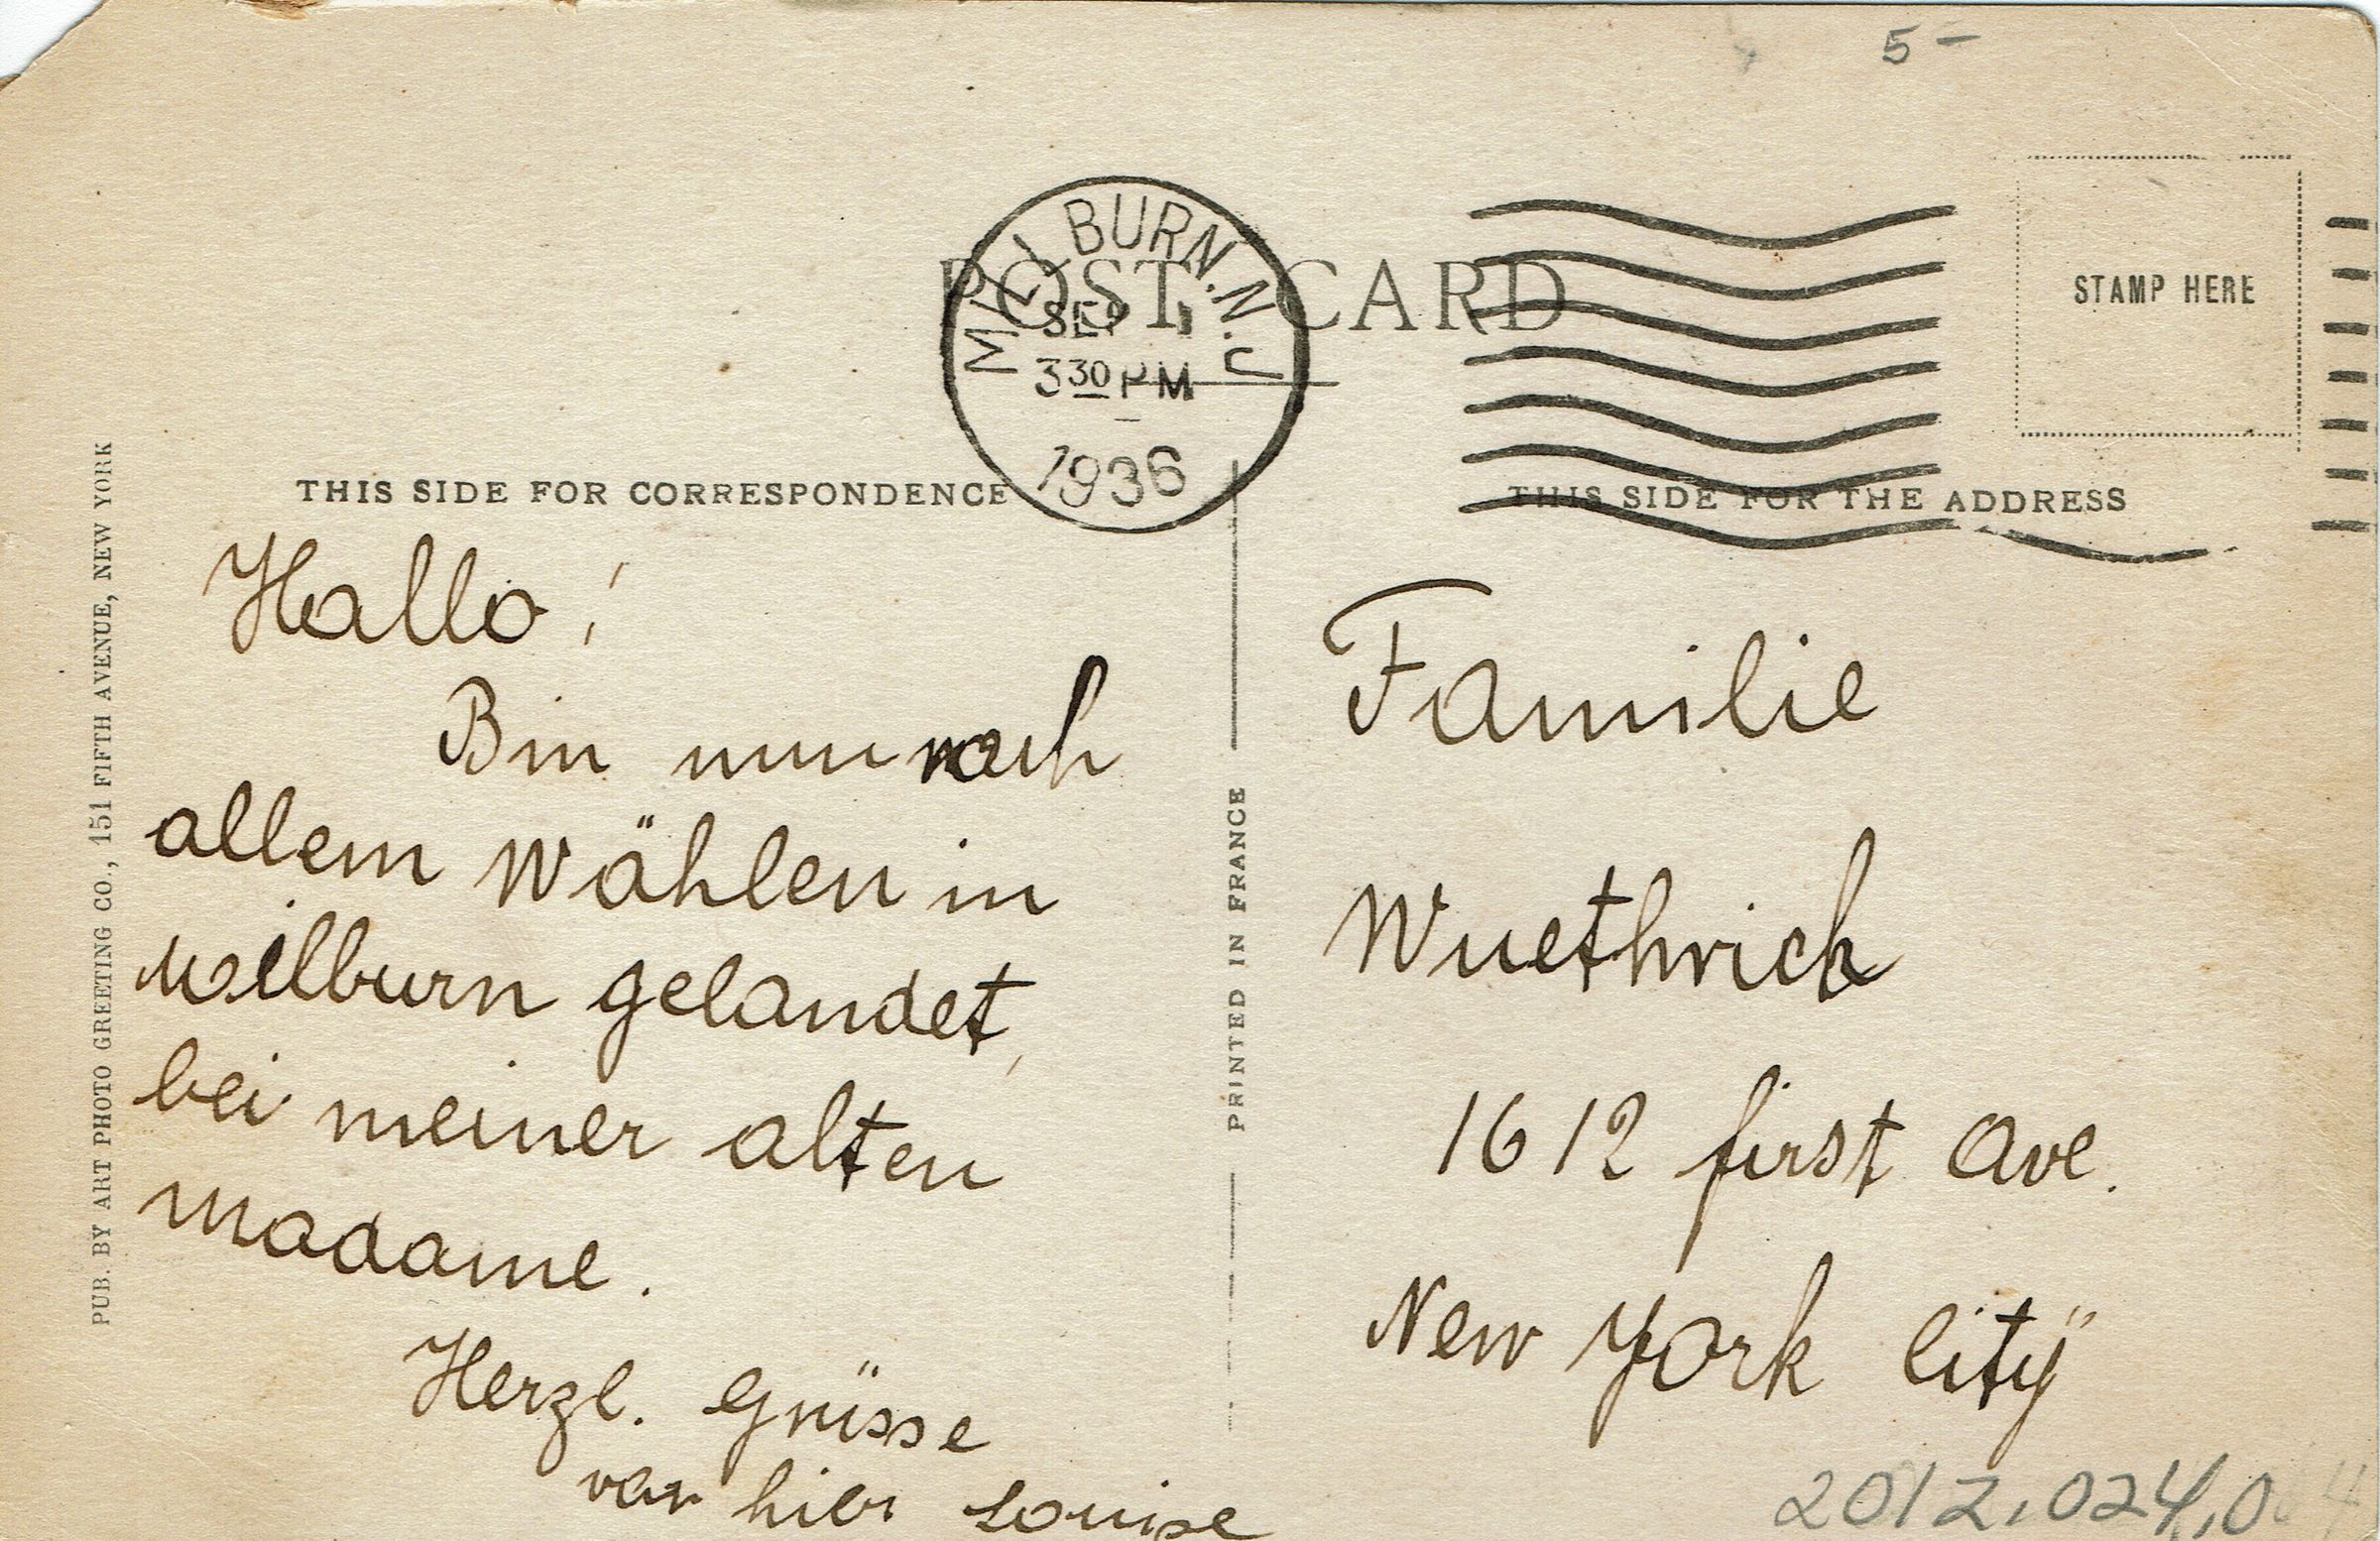 5 –
MILLBURN. N.J
SEP 1
3 30 PM
1936
POST CARD
STAMP HERE
THIS SIDE FOR CORRESPONDENCE
THIS SIDE FOR THE ADDRESS
PUB. BY ART PHOTO GREETING CO., 151 FIFTH AVENUE, NEW YORK
PRINTED IN FRANCE
Hallo!
Bin nun nach
allem Wählen in
Milburn gelandet,
bei meiner alten
Madame.
Herzl. Grüsse
von hier Louise
Familie
Wuethrich
1612 first Ave.
New York City
2012.024.0